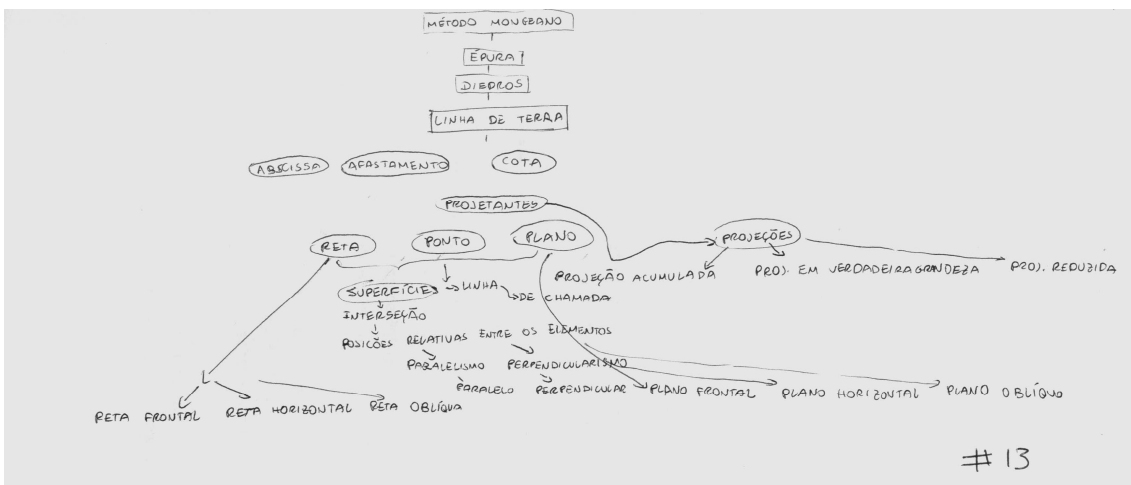 MÉTODO MONGEANO
ÉPURA
DIEDROS
LINHA DE TERRA
ABSCISSA AFASTAMENTO COTA
PROJETANTES
RETA PONTO PLANO PROJEÇÕES
PROJEÇÃO ACUMULADA PROJ. EM VERDADEIRA GRANDEZA PROJ. REDUZIDA
SUPERFÍCIES LINHA DE CHAMADA
INTERSEÇÃO
POSIÇÕES RELATIVAS ENTRE OS ELEMENTOS
PARALELISMO PERPENDICULARISMO
PARALELO PERPENDICULAR PLANO FRONTAL PLANO HORIZONTAL PLANO OBLÍQUO
RETA FRONTAL RETA HORIZONTAL RETA OBLÍQUA
# 13